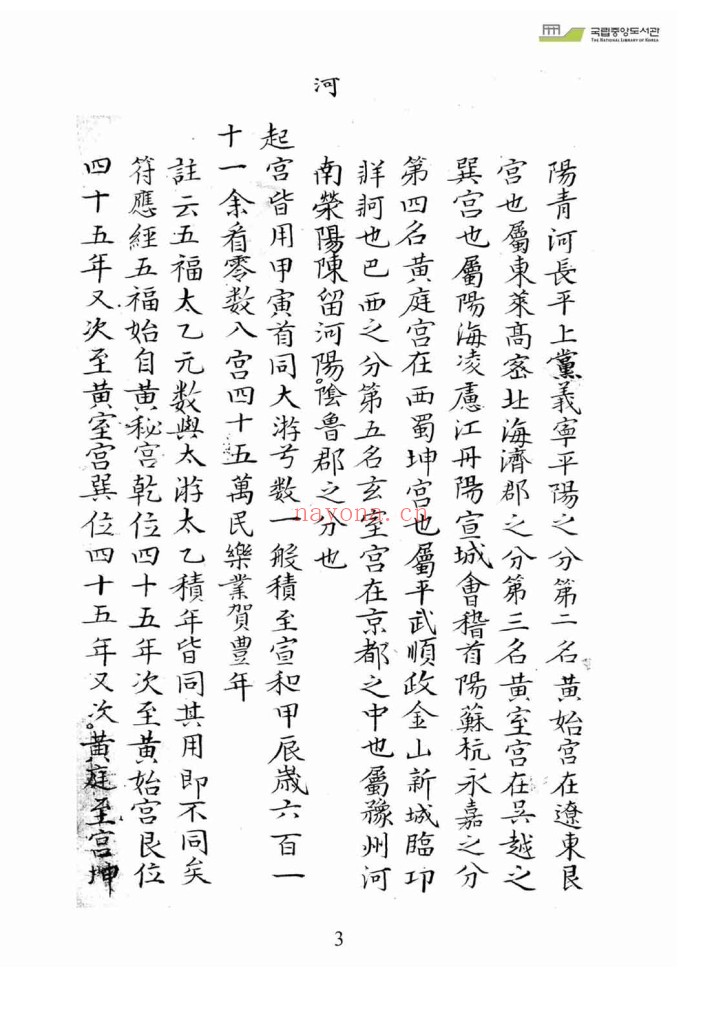 국립중앙도서관
THE NATIONAL LIBRARY OF KOREA
河
陽青河長平上黨義寧平陽之分第二名黃始宮在遼東艮
宮也屬東萊髙宻北海濟郡之分第三名黃室宮在吳越之
巽宮也屬陽海凌慮江丹陽宣城會稽首陽蘇杭永嘉之分
第四名黃庭宮在西蜀坤宮也屬平武順政金山新城臨卭
牂牁也巴西之分第五名玄室宮在京都之中也屬豫州河
南榮陽陳留河陽陰魯郡之分也
起宮皆用甲寅首同大游亏数一般積至宣和甲辰歲六百一
十一余看零数八宮四十五萬民樂業賀豊年
註云五福太乙元数與太游太乙積年皆同其用即不同矣
符應經五福始自黃秘宮乾位四十五年次至黃始宮艮位
四十五年又次至黃室宮巽位四十五年又次黃庭至宮坤
nayona.cn
3